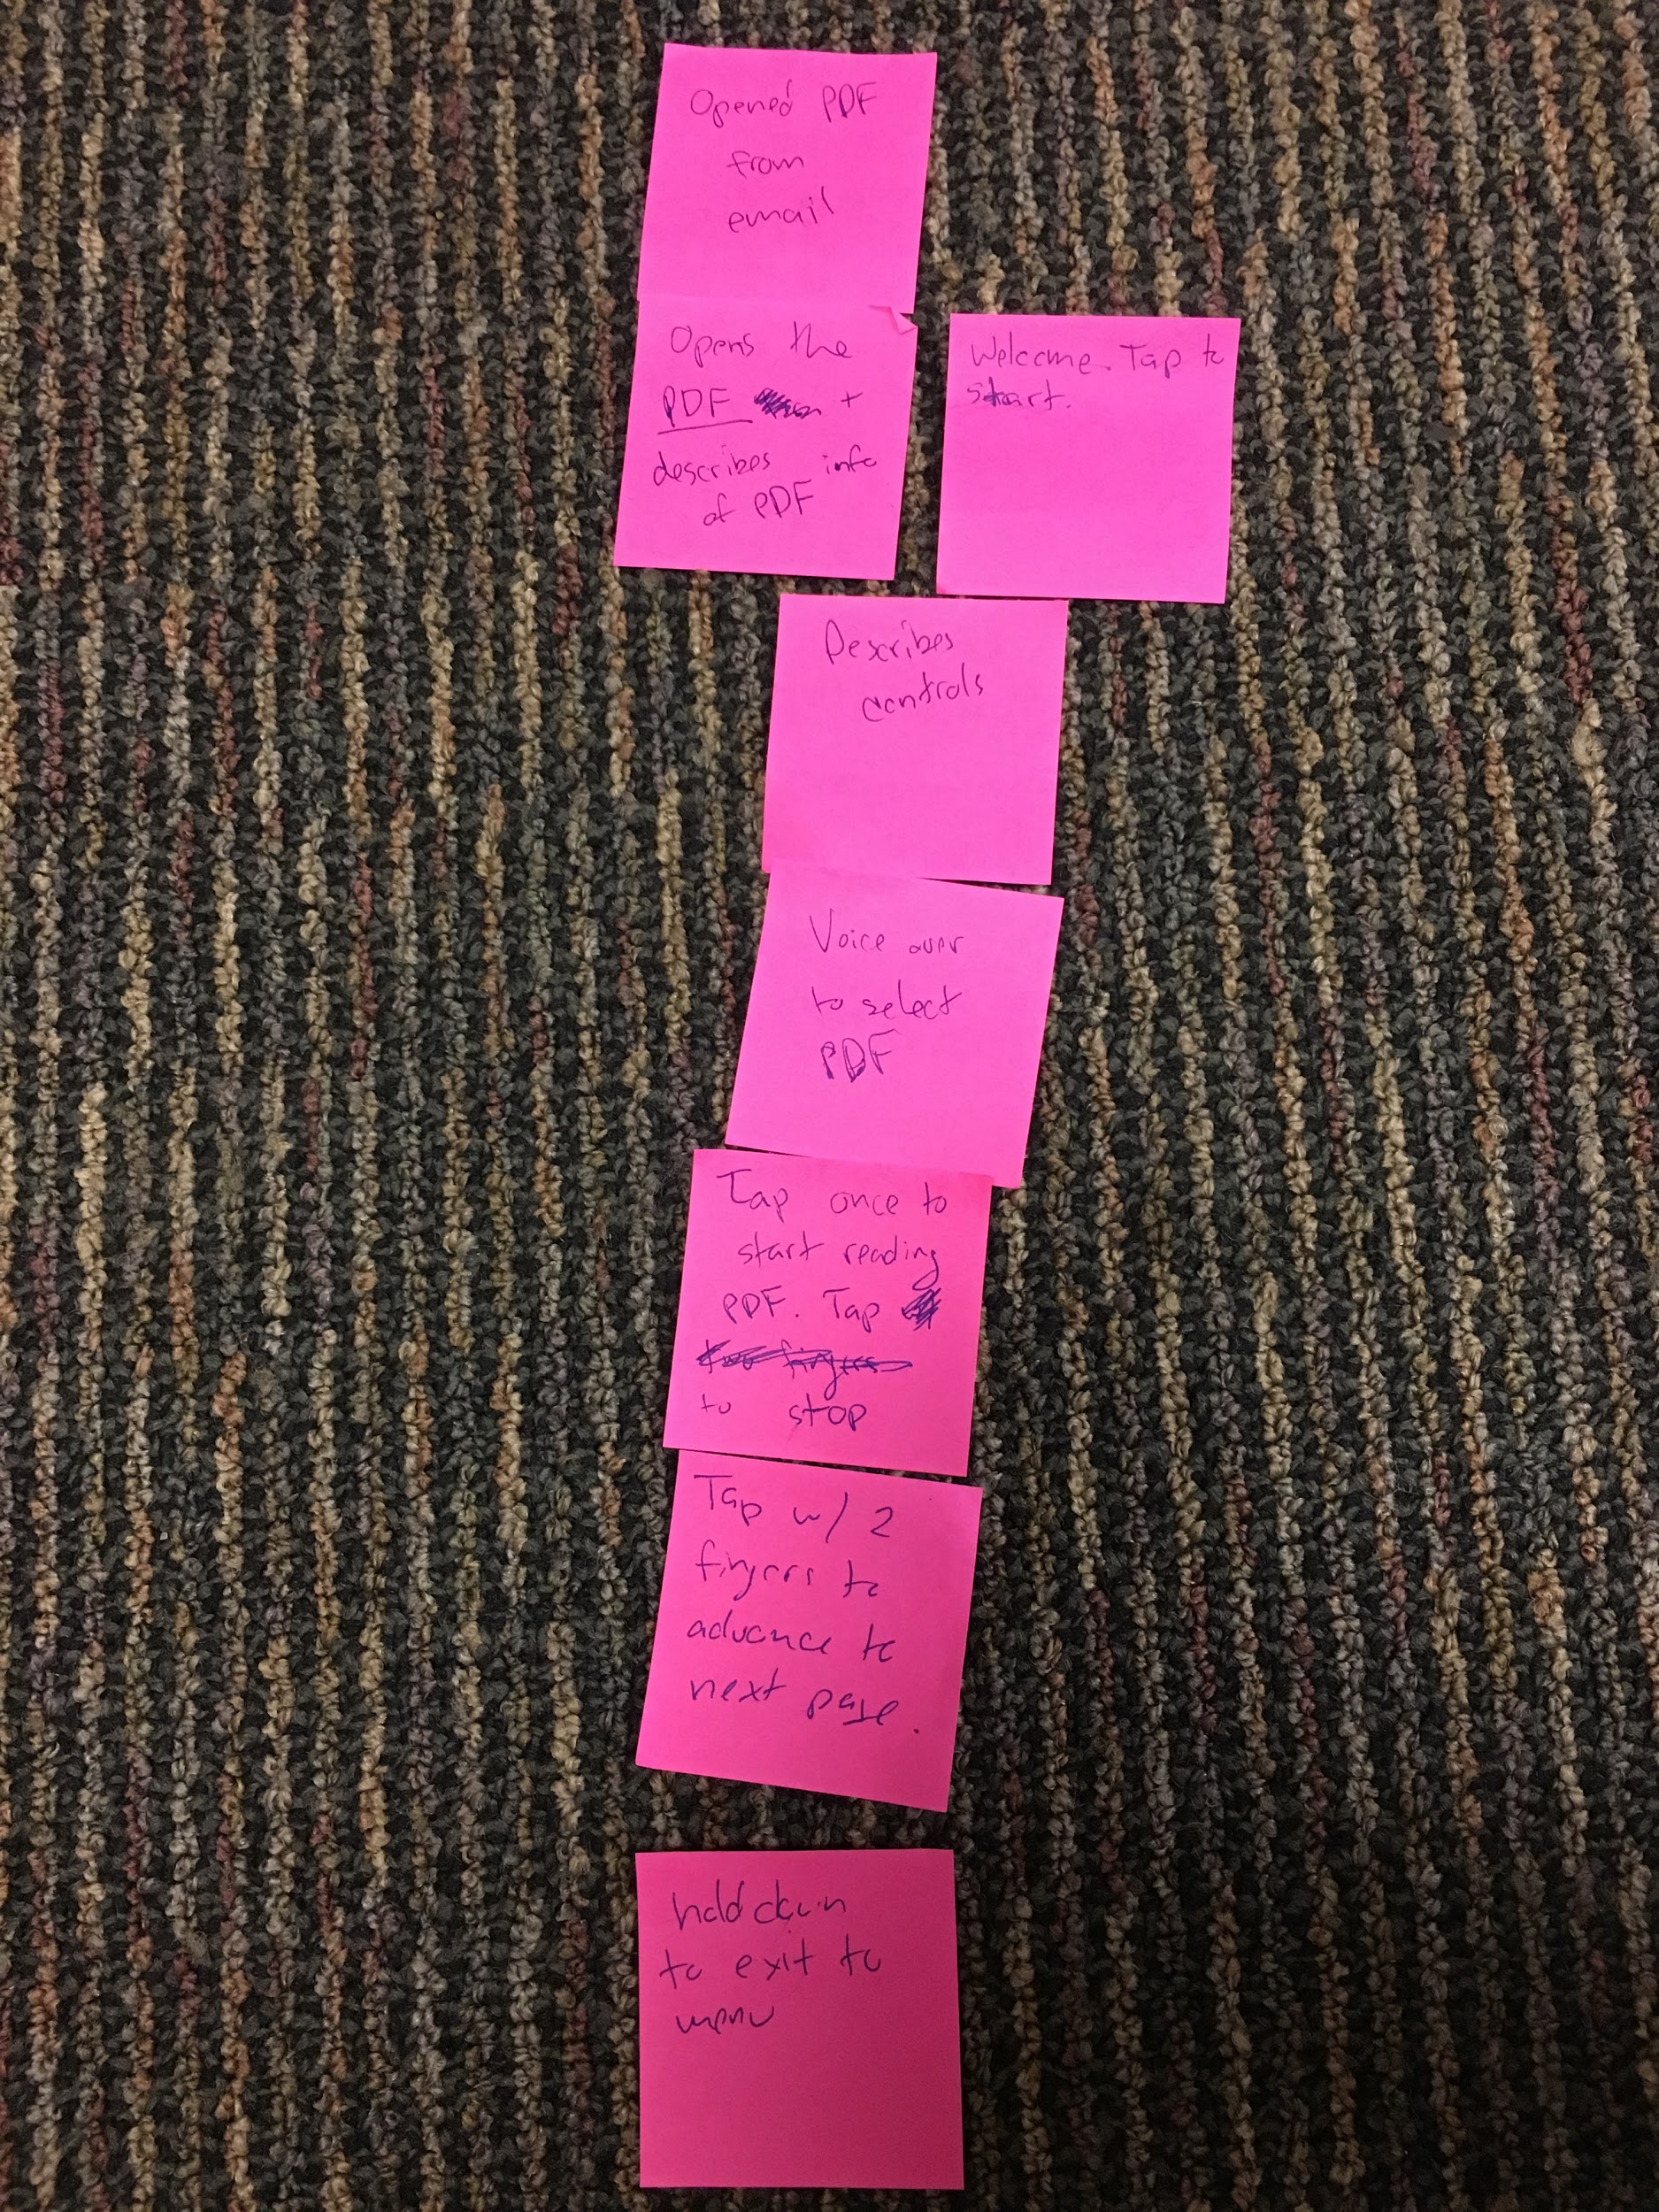 Opened PDF
from
email
Opens the
PDF +
describes info
of PDF
Welcome. Tap to
start.
Describes
controls
Voice over
to select
PDF
Tap once to
start reading
PDF. Tap
two fingers
to stop
Tap w/ 2
fingers to
advance to
next page.
hold down
to exit to
menu